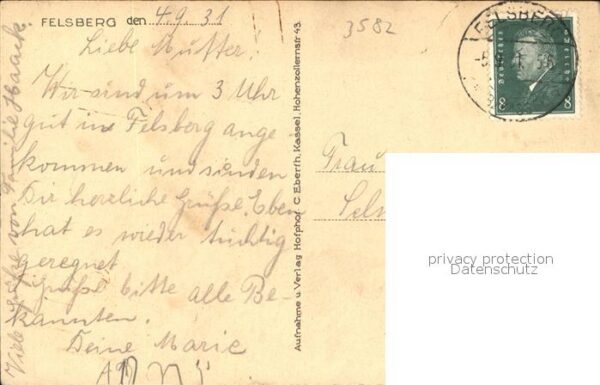 FELSBERG den 4.9.31
3582
Liebe Mutter!
Wir sind um 3 Uhr
gut in Felsberg ange-
kommen und sinden
Dir herzliche Grüße. Eben
hat es wieder tüchtig
geregnet
Grüße bitte alle Be-
kannten.
Deine Marie
Viele Grüße von Familie Haack.
Aufnahme u. Verlag Hofphot. C. Eberth, Kassel, Hohenzollernstr. 43.
FELSBERG
Deutsches Reich
8 8
Frau
privacy protection
Datenschutz